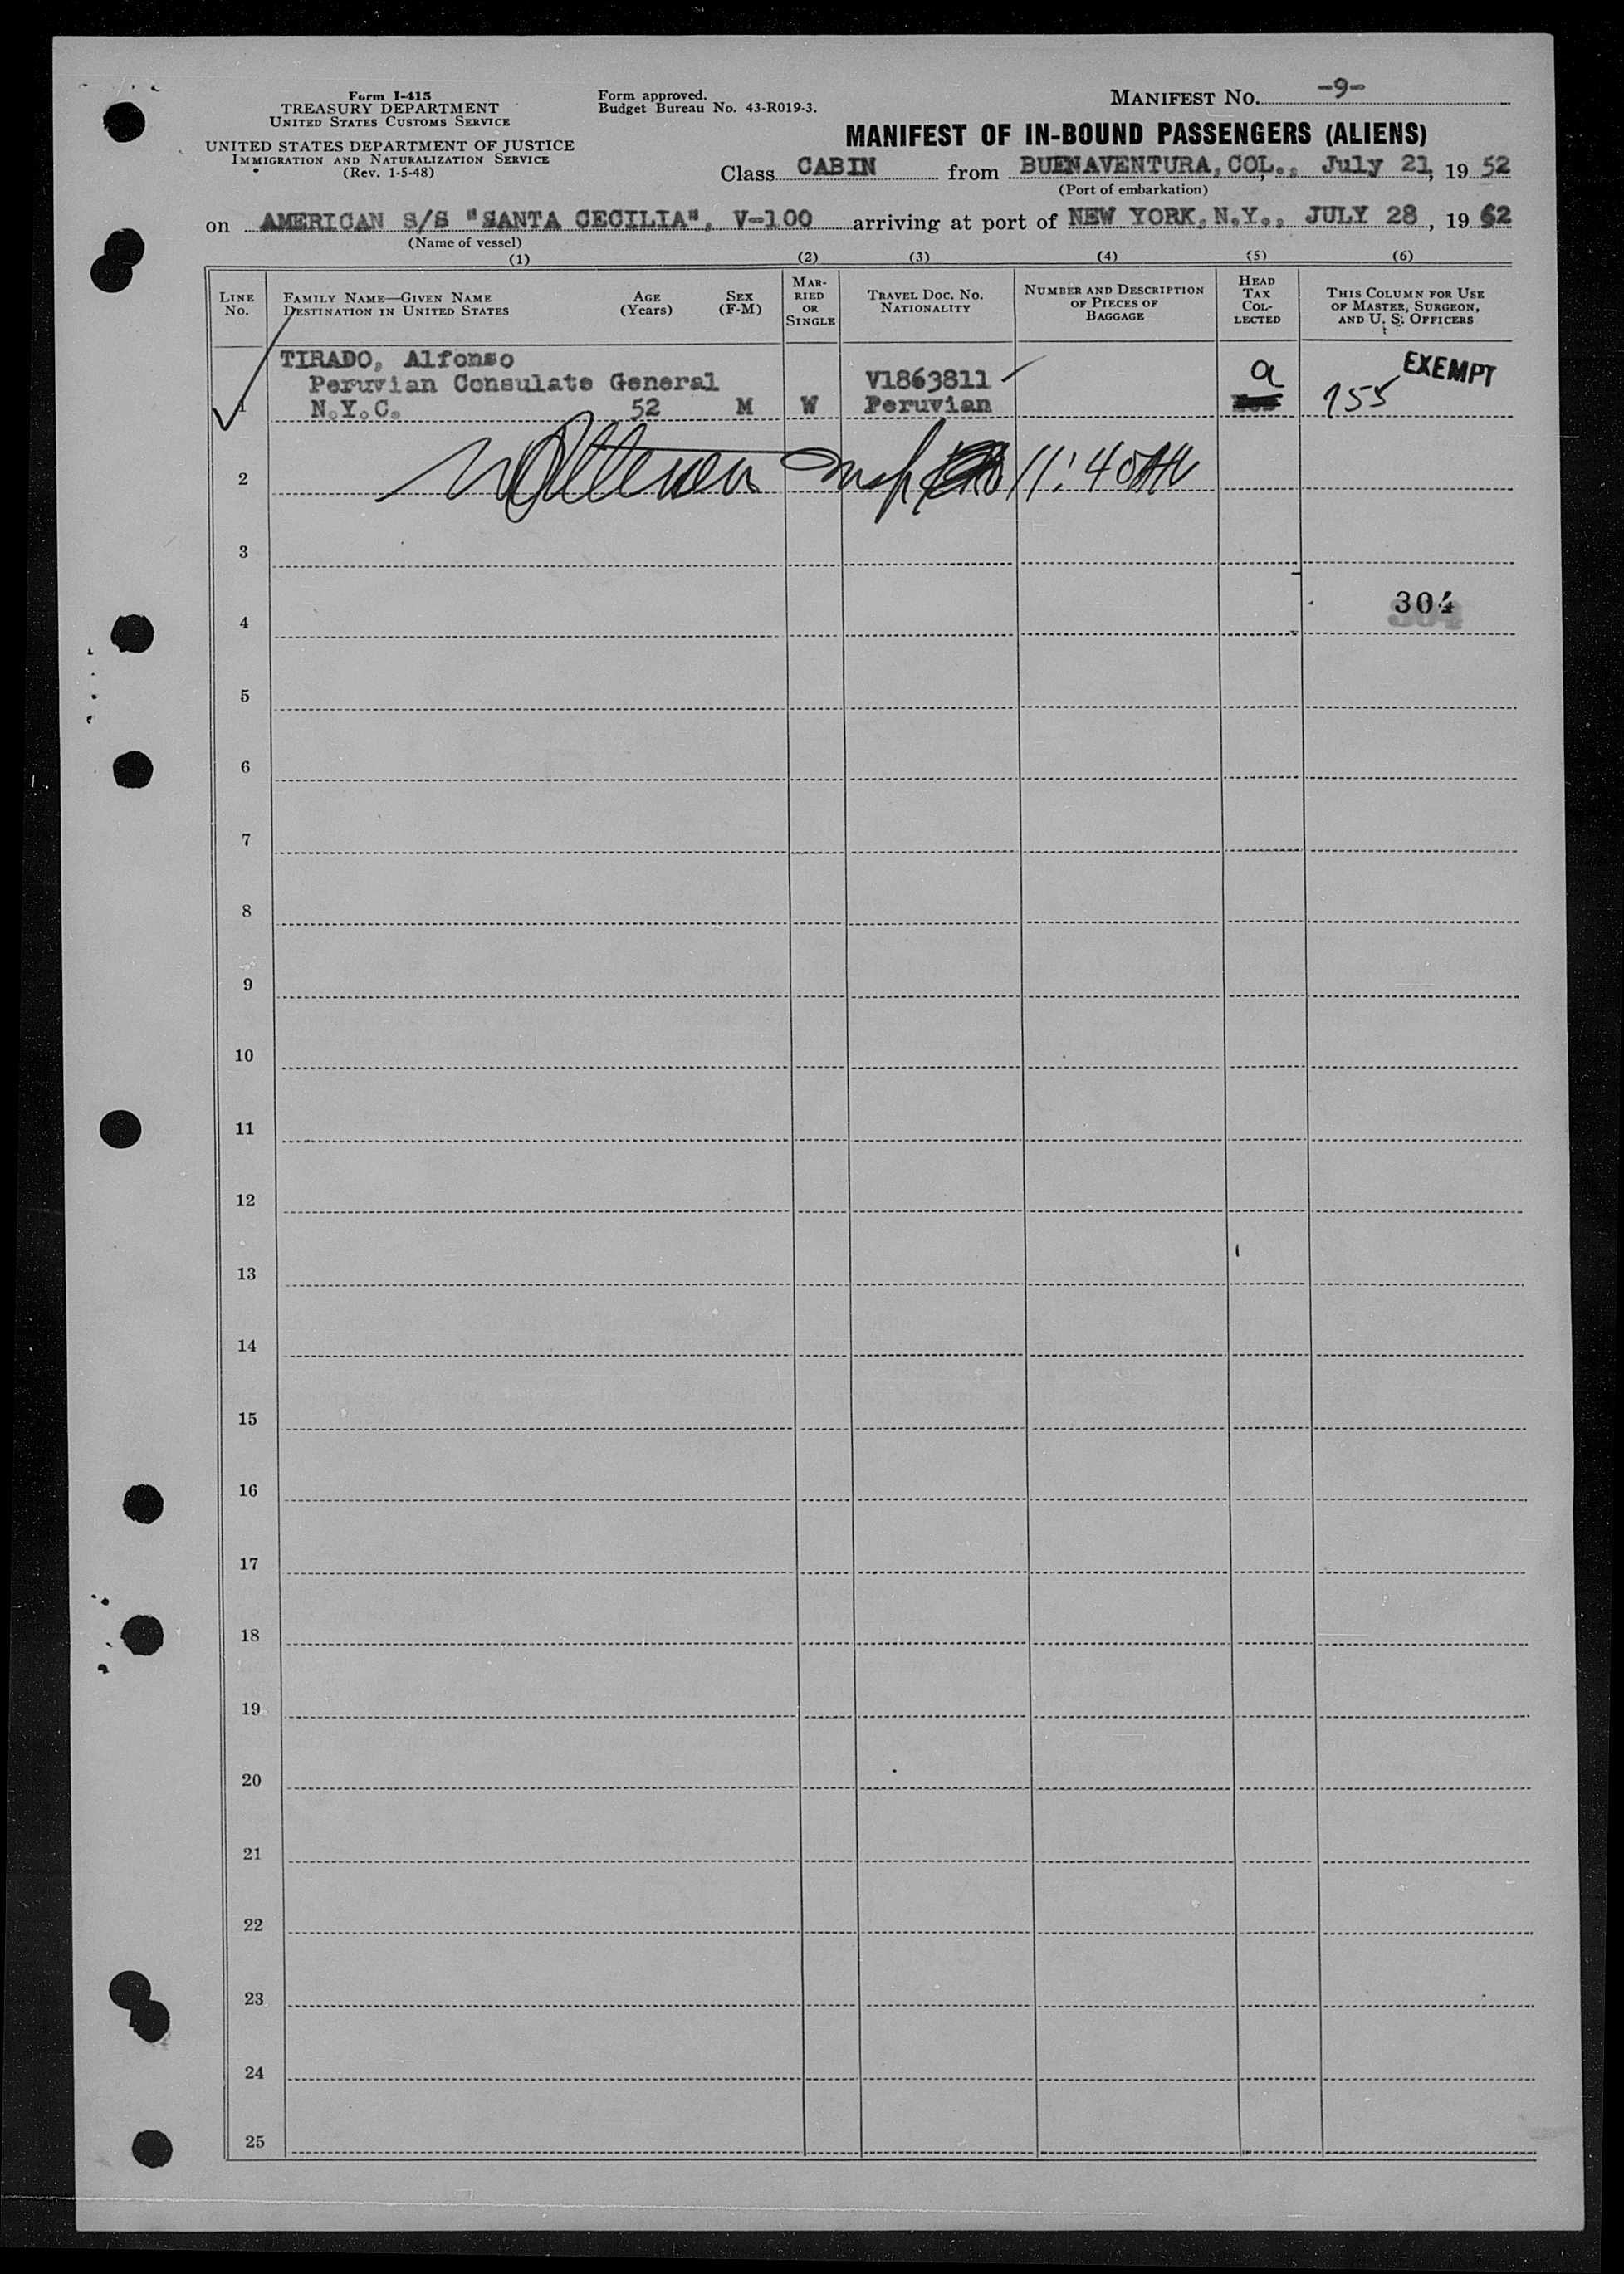 Form I-415
TREASURY DEPARTMENT
UNITED STATES CUSTOMS SERVICE
UNITED STATES DEPARTMENT OF JUSTICE
IMMIGRATION AND NATURALIZATION SERVICE
(Rev. 1-5-48)
Form approved.
Budget Bureau No. 43-R019-3.
MANIFEST NO. -9-
MANIFEST OF IN-BOUND PASSENGERS (ALIENS)
Class CABIN from BUENAVENTURA, COL., July 21, 19 52
(Port of embarkation)
on AMERICAN S/S "SANTA CECILIA", V-100 arriving at port of NEW YORK, N.Y., JULY 28, 19 52
(Name of vessel)
(1) (2) (3) (4) (5) (6)
LINE No.
FAMILY NAME—GIVEN NAME
DESTINATION IN UNITED STATES
AGE (Years)
SEX (F-M)
MARRIED OR SINGLE
TRAVEL DOC. NO. NATIONALITY
NUMBER AND DESCRIPTION OF PIECES OF BAGGAGE
HEAD TAX COLLECTED
THIS COLUMN FOR USE OF MASTER, SURGEON, AND U. S. OFFICERS
TIRADO, Alfonso
Peruvian Consulate General V1863811 a EXEMPT
1 N.Y.C. 52 M W Peruvian 155
2 11:40 AM
3
4 304
5
6
7
8
9
10
11
12
13
14
15
16
17
18
19
20
21
22
23
24
25